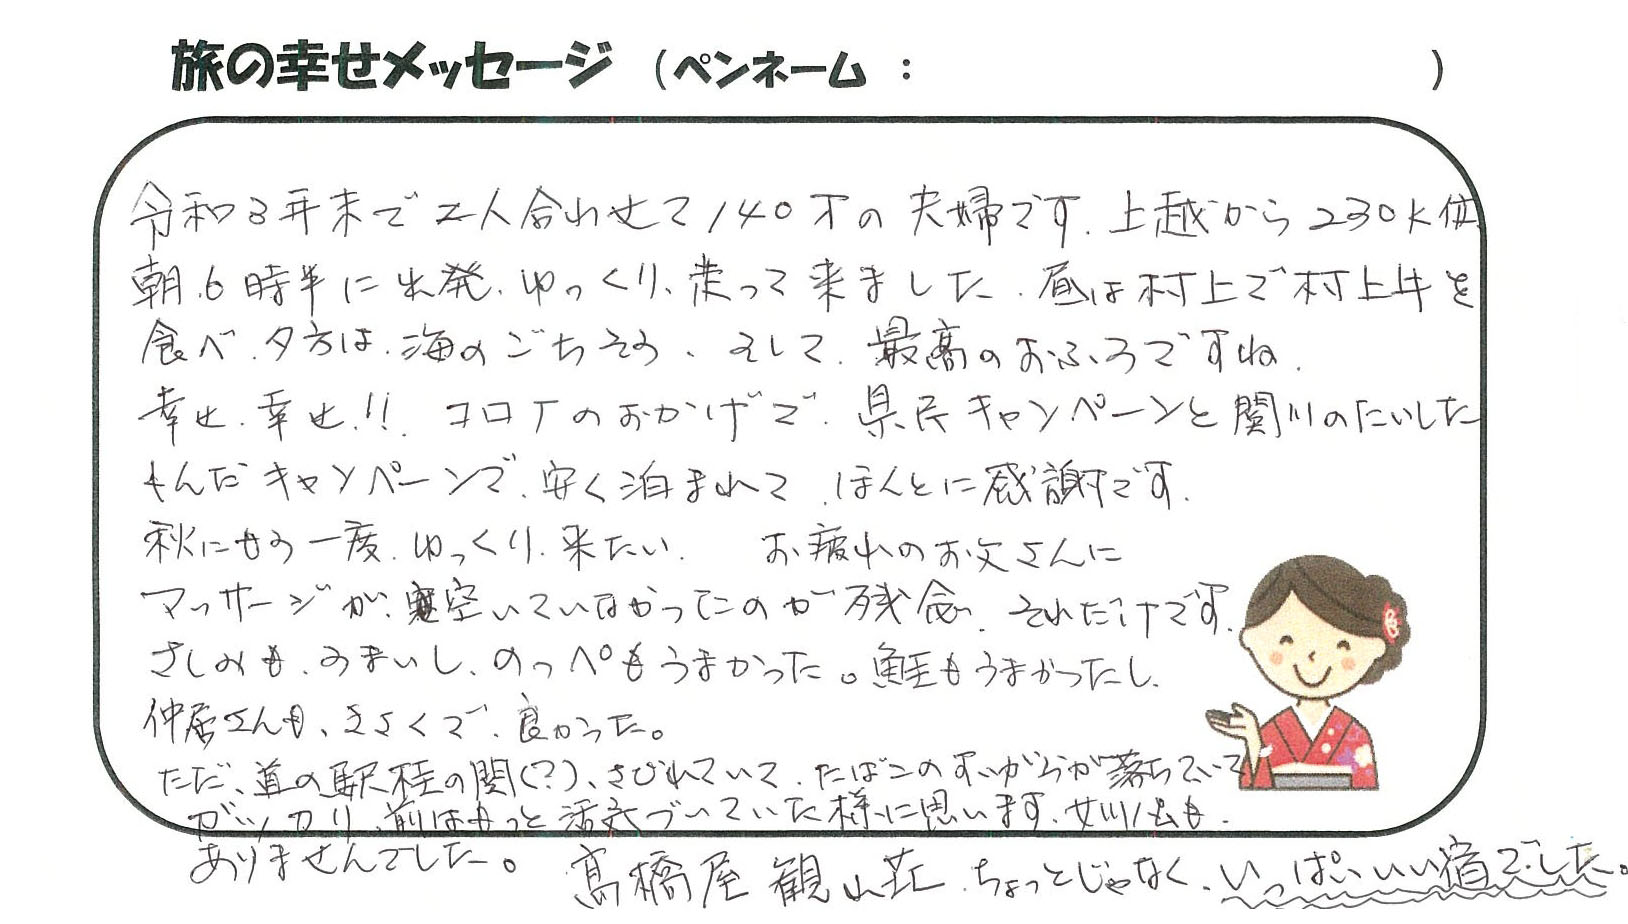 旅の幸せメッセージ (ペンネーム : )
令和3年末で二人合わせて140才の夫婦です. 上越から230K位
朝.6時半に出発. ゆっくり、走って来ました. 昼は村上で村上牛を
食べ. 夕方は. 海のごちそう、そして. 最高のおふろですね.
幸せ. 幸せ.!! コロナのおかげで. 県民キャンペーンと関川のたいした
もんだキャンペーンで. 安く泊まれて. ほんとに感謝です.
秋にもう一度. ゆっくり. 来たい. お疲れのお父さんに
マッサージが. 空いていなかったのが残念. それだけです.
さしみも. うまいし. のっぺもうまかった。鮭もうまかったし.
仲居さんも、きさくで. 良かった。
ただ、道の駅桂の関(?)、さびれていて. たばこのすいがらが落ちていて
ガッカリ. 前はもっと活気づいていた様に思います. 女川も.
ありませんでした。 高橋屋観山荘. ちょっとじゃなく. いっぱいいい宿でした。